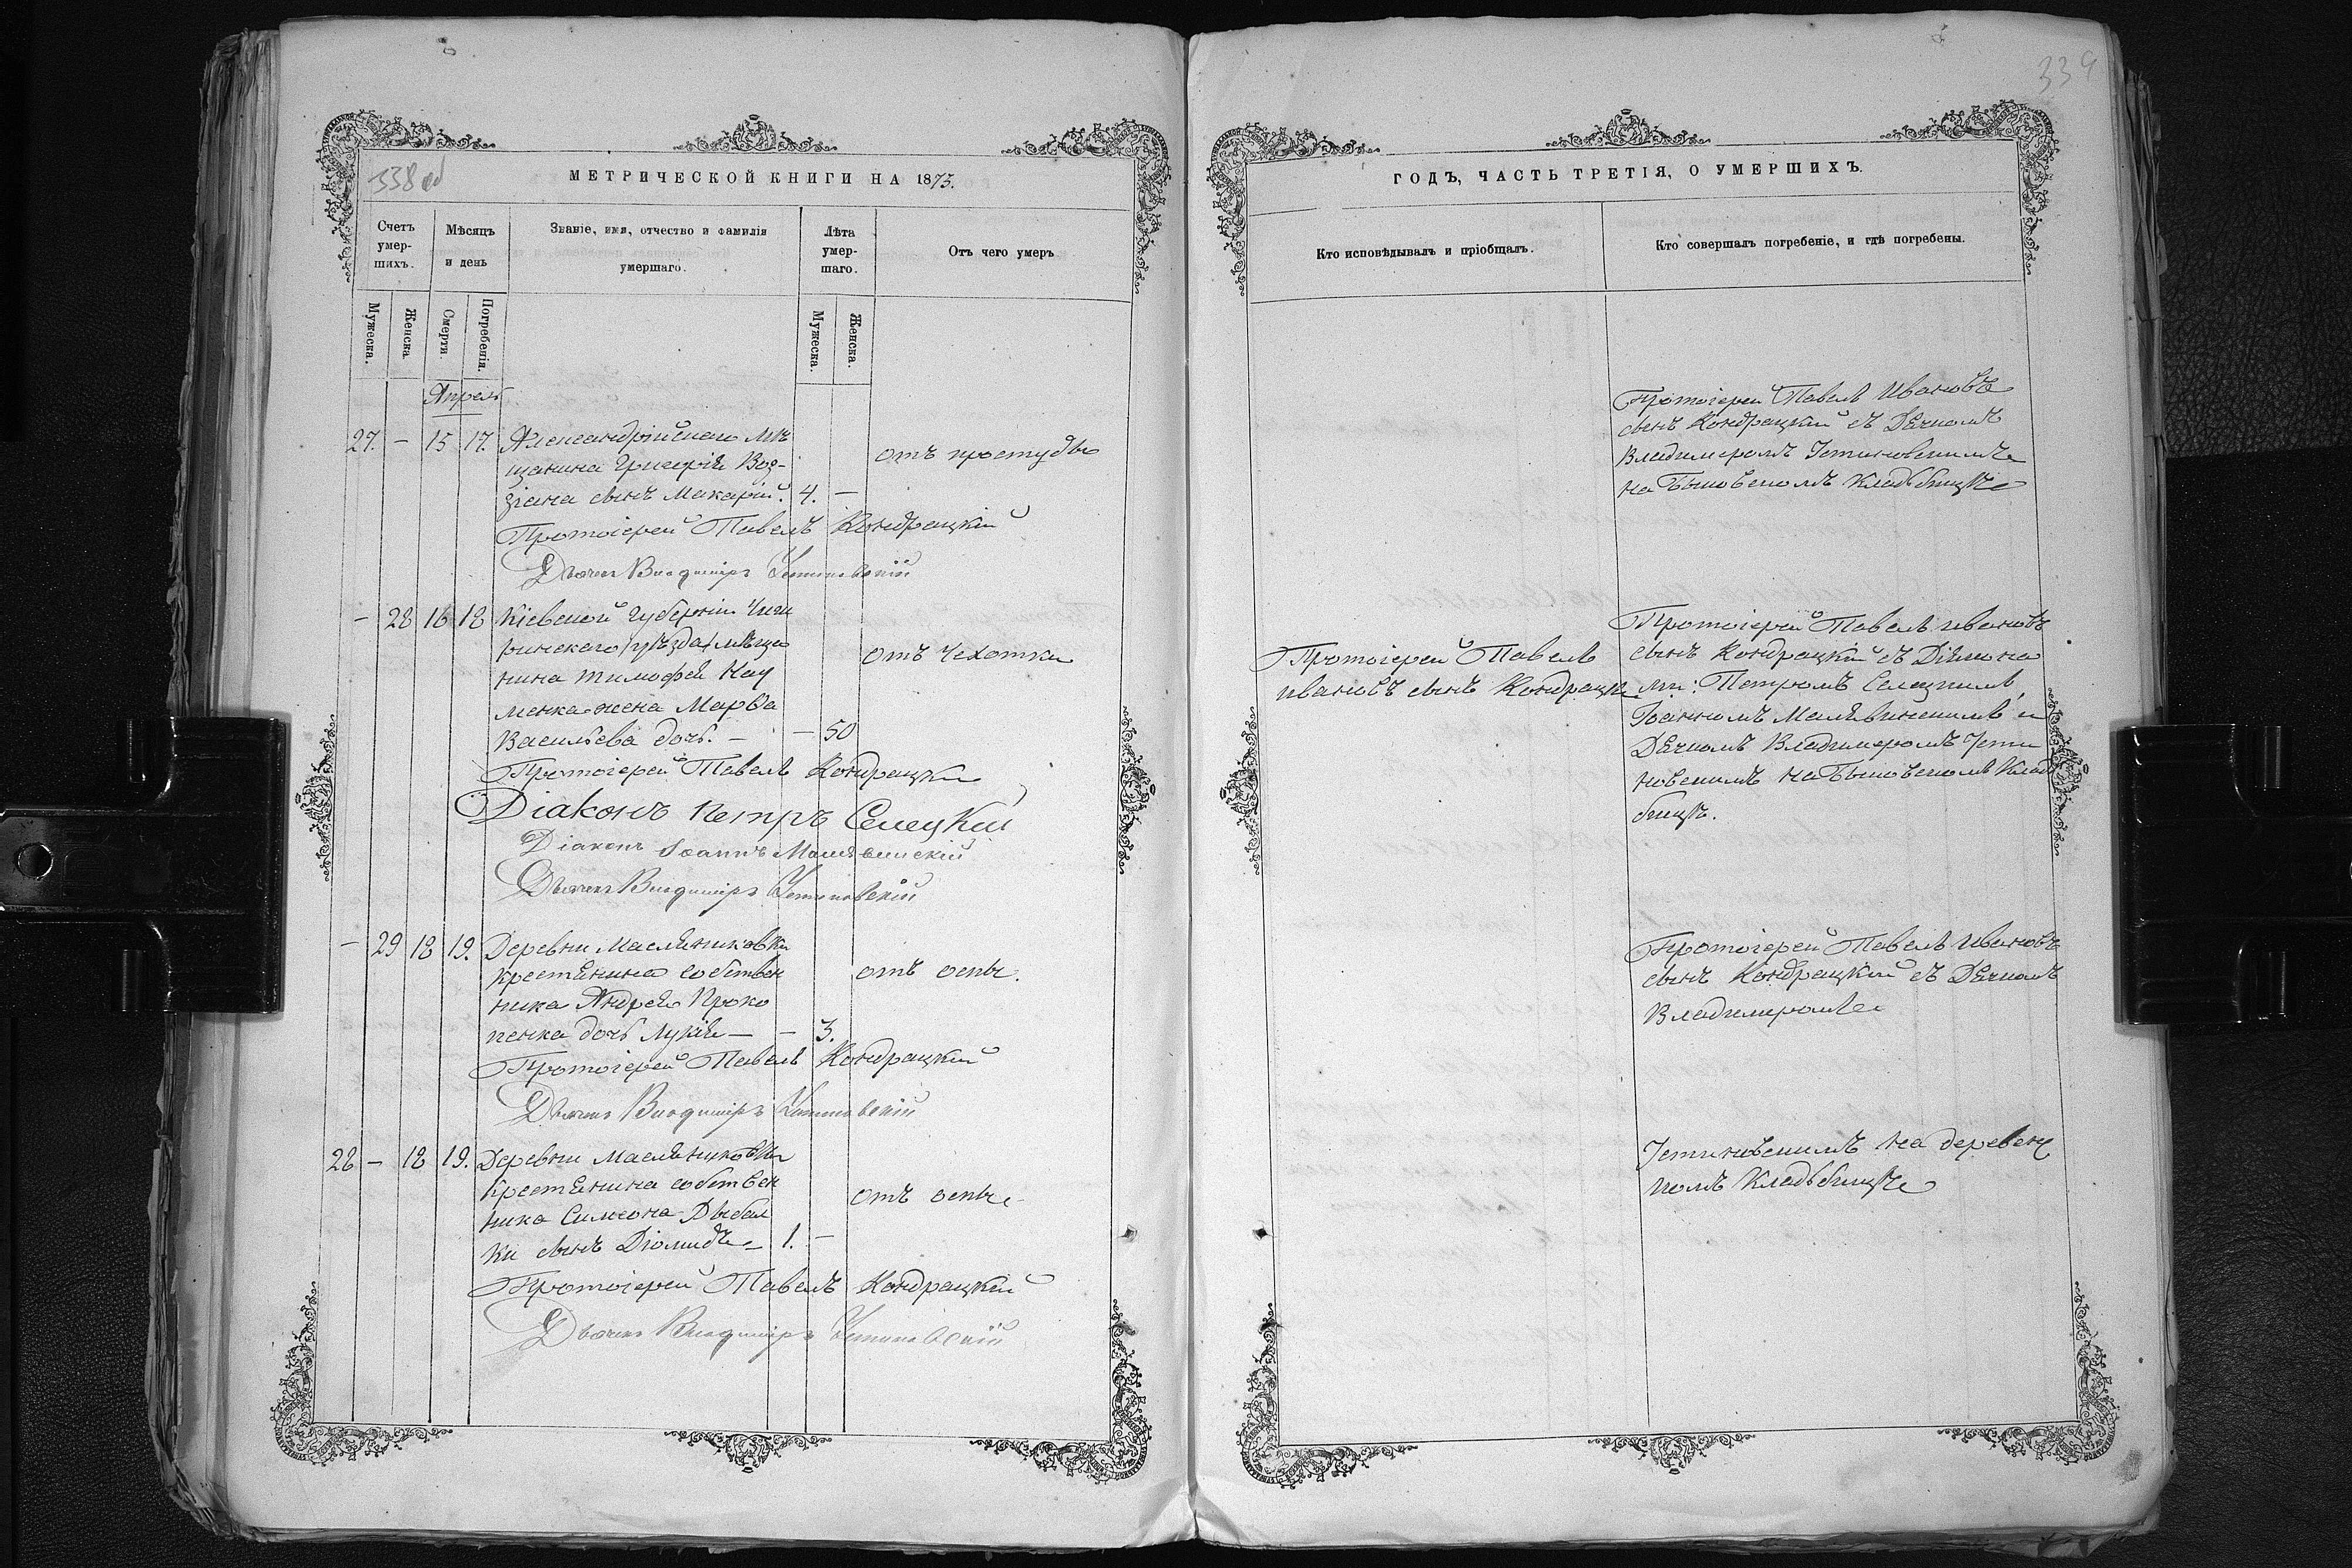 338 об
МЕТРИЧЕСКОЙ КНИГИ НА 1873.
Счетъ умер-шихъ.
Мѣсяцъ и день
Званіе, имя, отчество и фамилія умершаго.
Лѣта умер-шаго.
Отъ чего умеръ
Мужеска.
Женска.
Смерти.
Погребенія.
Мужеска.
Женска.
Апрель
27. – 15 17. Александрійскаго мѣ
щанина Григорія Воз-
зіана сынъ Макарій. 4. –
отъ простуды
Протоіерей Павелъ Кондрацкій
Дьячекъ Владиміръ Устиновскій
– 28 16 18 Кіевской губерніи Чиги
ринскаго уѣзда мѣща
нина Тимофея Нау
менка жена Марѳа
Васильева дочь. – – 50
отъ чехотки
Протоіерей Павелъ Кондрацкій
Діаконъ Петръ Селецкій
Діаконъ Іоаннъ Малявинскій
Дьячекъ Владиміръ Устиновскій
– 29 18 19. Деревни Масляниковки
крестянина собствен
ника Андрея Проко
пенка дочь Лукія – – 3.
отъ оспы.
Протоіерей Павелъ Кондрацкій
Дьячекъ Владиміръ Устиновскій
28 – 18 19. Деревни Масляниковки
крестянина собствен
ника Симеона Дыбал
ки сынъ Діомидъ – 1. –
отъ оспы
Протоіерей Павелъ Кондрацкій
Дьячекъ Владиміръ Устиновскій
339
ГОДЪ, ЧАСТЬ ТРЕТІЯ, О УМЕРШИХЪ.
Кто исповѣдывалъ и пріобщалъ.
Кто совершалъ погребеніе, и гдѣ погребены.
Протоіерей Павелъ Ивановъ
сынъ Кондрацкій съ Дячкомъ
Владимеромъ Устиновскимъ
на Быковскомъ кладбищѣ
Протоіерей Павелъ
Ивановъ сынъ Кондрацк
Протоіерей Павелъ Ивановъ
сынъ Кондрацкій съ Діякона
ми: Петромъ Селецкимъ,
Іоанномъ Малявинскимъ и
Дячкомъ Владимеромъ Усти
новскимъ на Быковскомъ клад
бищѣ.
Протоіерей Павелъ Ивановъ
сынъ Кондрацкій съ Дячкомъ
Владимеромъ
Устиновскимъ на деревенс
комъ кладьбищѣ